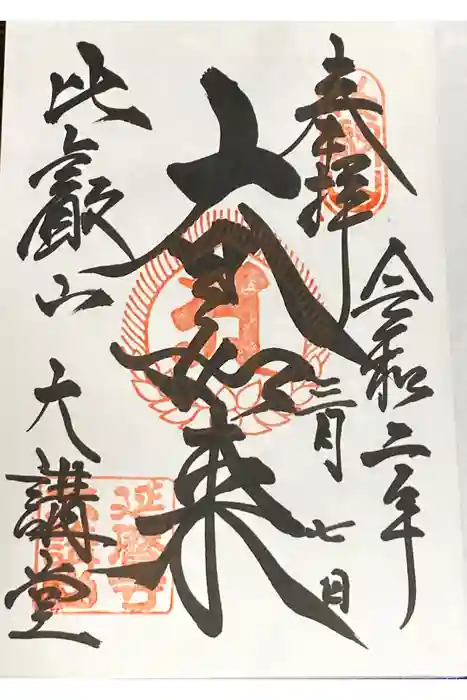 奉拝
令和二年
三月七日
大日如来
比叡山 大講堂
延暦寺
大講堂